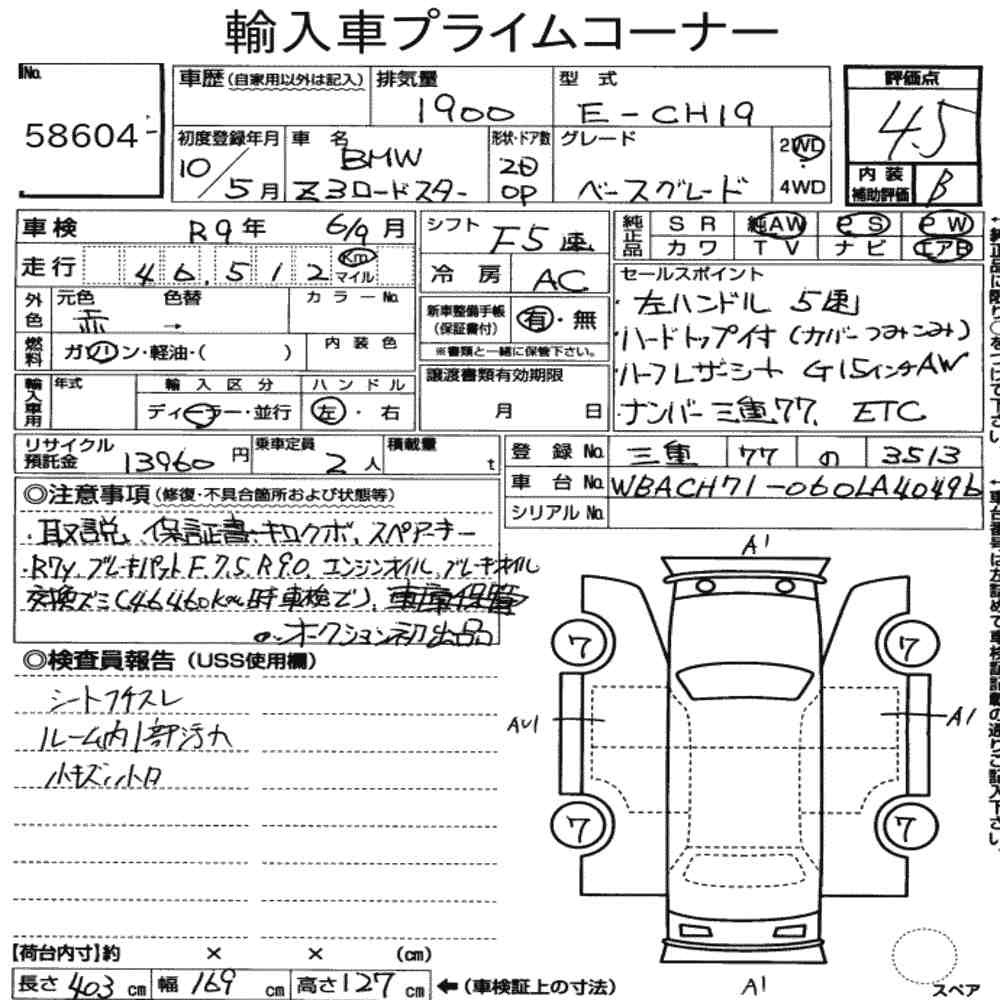 輸入車プライムコーナー
No. 58604
車歴(自家用以外は記入) 排気量 1900 型式 E-CH19 評価点 4.5
初度登録年月 10/5月 車名 BMW Z3ロードスター 形状・ドア数 2D OP グレード ベースグレード 2WD・4WD 内装補助評価 B
車検 R9年 6/9月 シフト F5速 純正品 SR 純AW PS PW
カワ TV ナビ エアB
走行 46,512 Km マイル 冷房 AC セールスポイント
外色 元色 赤 色替 → カラーNo. 新車整備手帳(保証書付) 有・無
※書類と一緒に保管下さい。
・左ハンドル 5速
・ハードトップ付(カバーつみこみ)
・ハーフレザーシート G15インチAW
・ナンバー三重77, ETC
燃料 ガソリン・軽油・( ) 内装色
譲渡書類有効期限 月 日
輸入車用 年式 輸入区分 ディーラー・並行 ハンドル 左・右
リサイクル預託金 13960円 乗車定員 2人 積載量 t
登録No. 三重 77 の 3513
車台No. WBACH71-060LA40496
シリアルNo.
◎注意事項(修復・不具合箇所および状態等)
・取説、保証書、キロクボ、スペアーキー
・R7y, ブレーキパットF.7.5, R9.0, エンジンオイル、ブレーキオイル
交換ズミ(46460km時車検で)、車庫保管
オークション初出品
◎検査員報告(USS使用欄)
シートフチスレ
ルーム内1部汚れ
小キズ、小凹
A1
7 7
AU1 A1
7 7
A1
スペア
【荷台内寸】約 × × (cm)
長さ 403 cm 幅 169 cm 高さ 127 cm ←(車検証上の寸法)
←純正品に限り○をつけて下さい。
←車台番号は左詰めで車検証記載の通りご記入下さい。